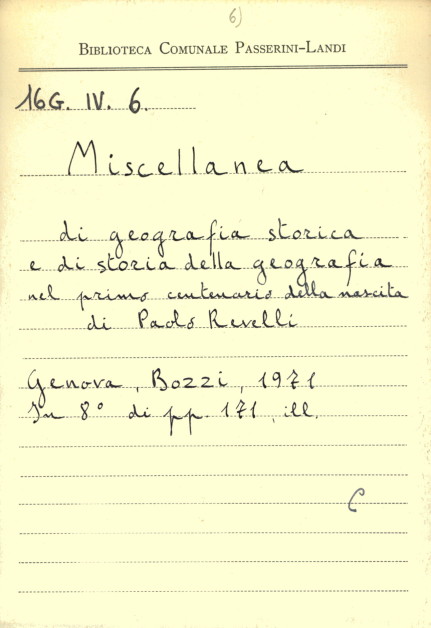 6)
BIBLIOTECA COMUNALE PASSERINI-LANDI
16G. IV. 6.
Miscellanea
di geografia storica
e di storia della geografia
nel primo centenario della nascita
di Paolo Revelli
Genova, Bozzi, 1971
In 8° di pp. 171, ill.
C